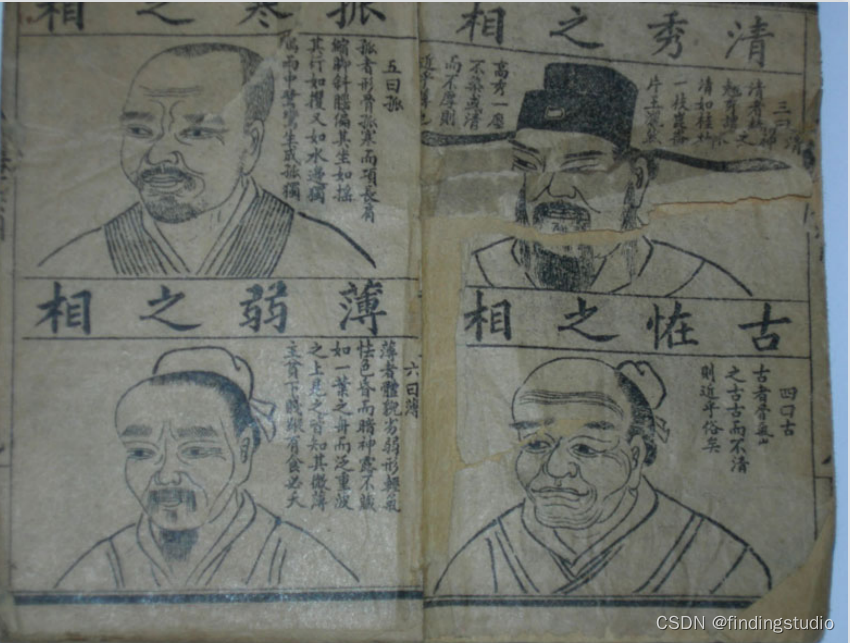 清秀之相
三曰清
清者
翹秀謂之
清如桂林
一枝崑崙
片玉灑然
高秀一塵
不染或清
而不厚則
近乎薄也
古恠之相
四曰古
古者骨氣
之古古而不清
則近乎俗矣
孤寒之相
五曰孤
孤者形骨孤寒而項長肩
縮脚斜腦偏其坐如搖
其行如攫又如水邊獨
雨中鷺鷥生成孤獨
薄弱之相
六曰薄
薄者體貌劣弱形輕氣
怯色昏而暗神露不藏
如一葉之舟而泛重波
之上見之皆知其微薄
主貧下賤縱有食必夭
CSDN @findingstudio